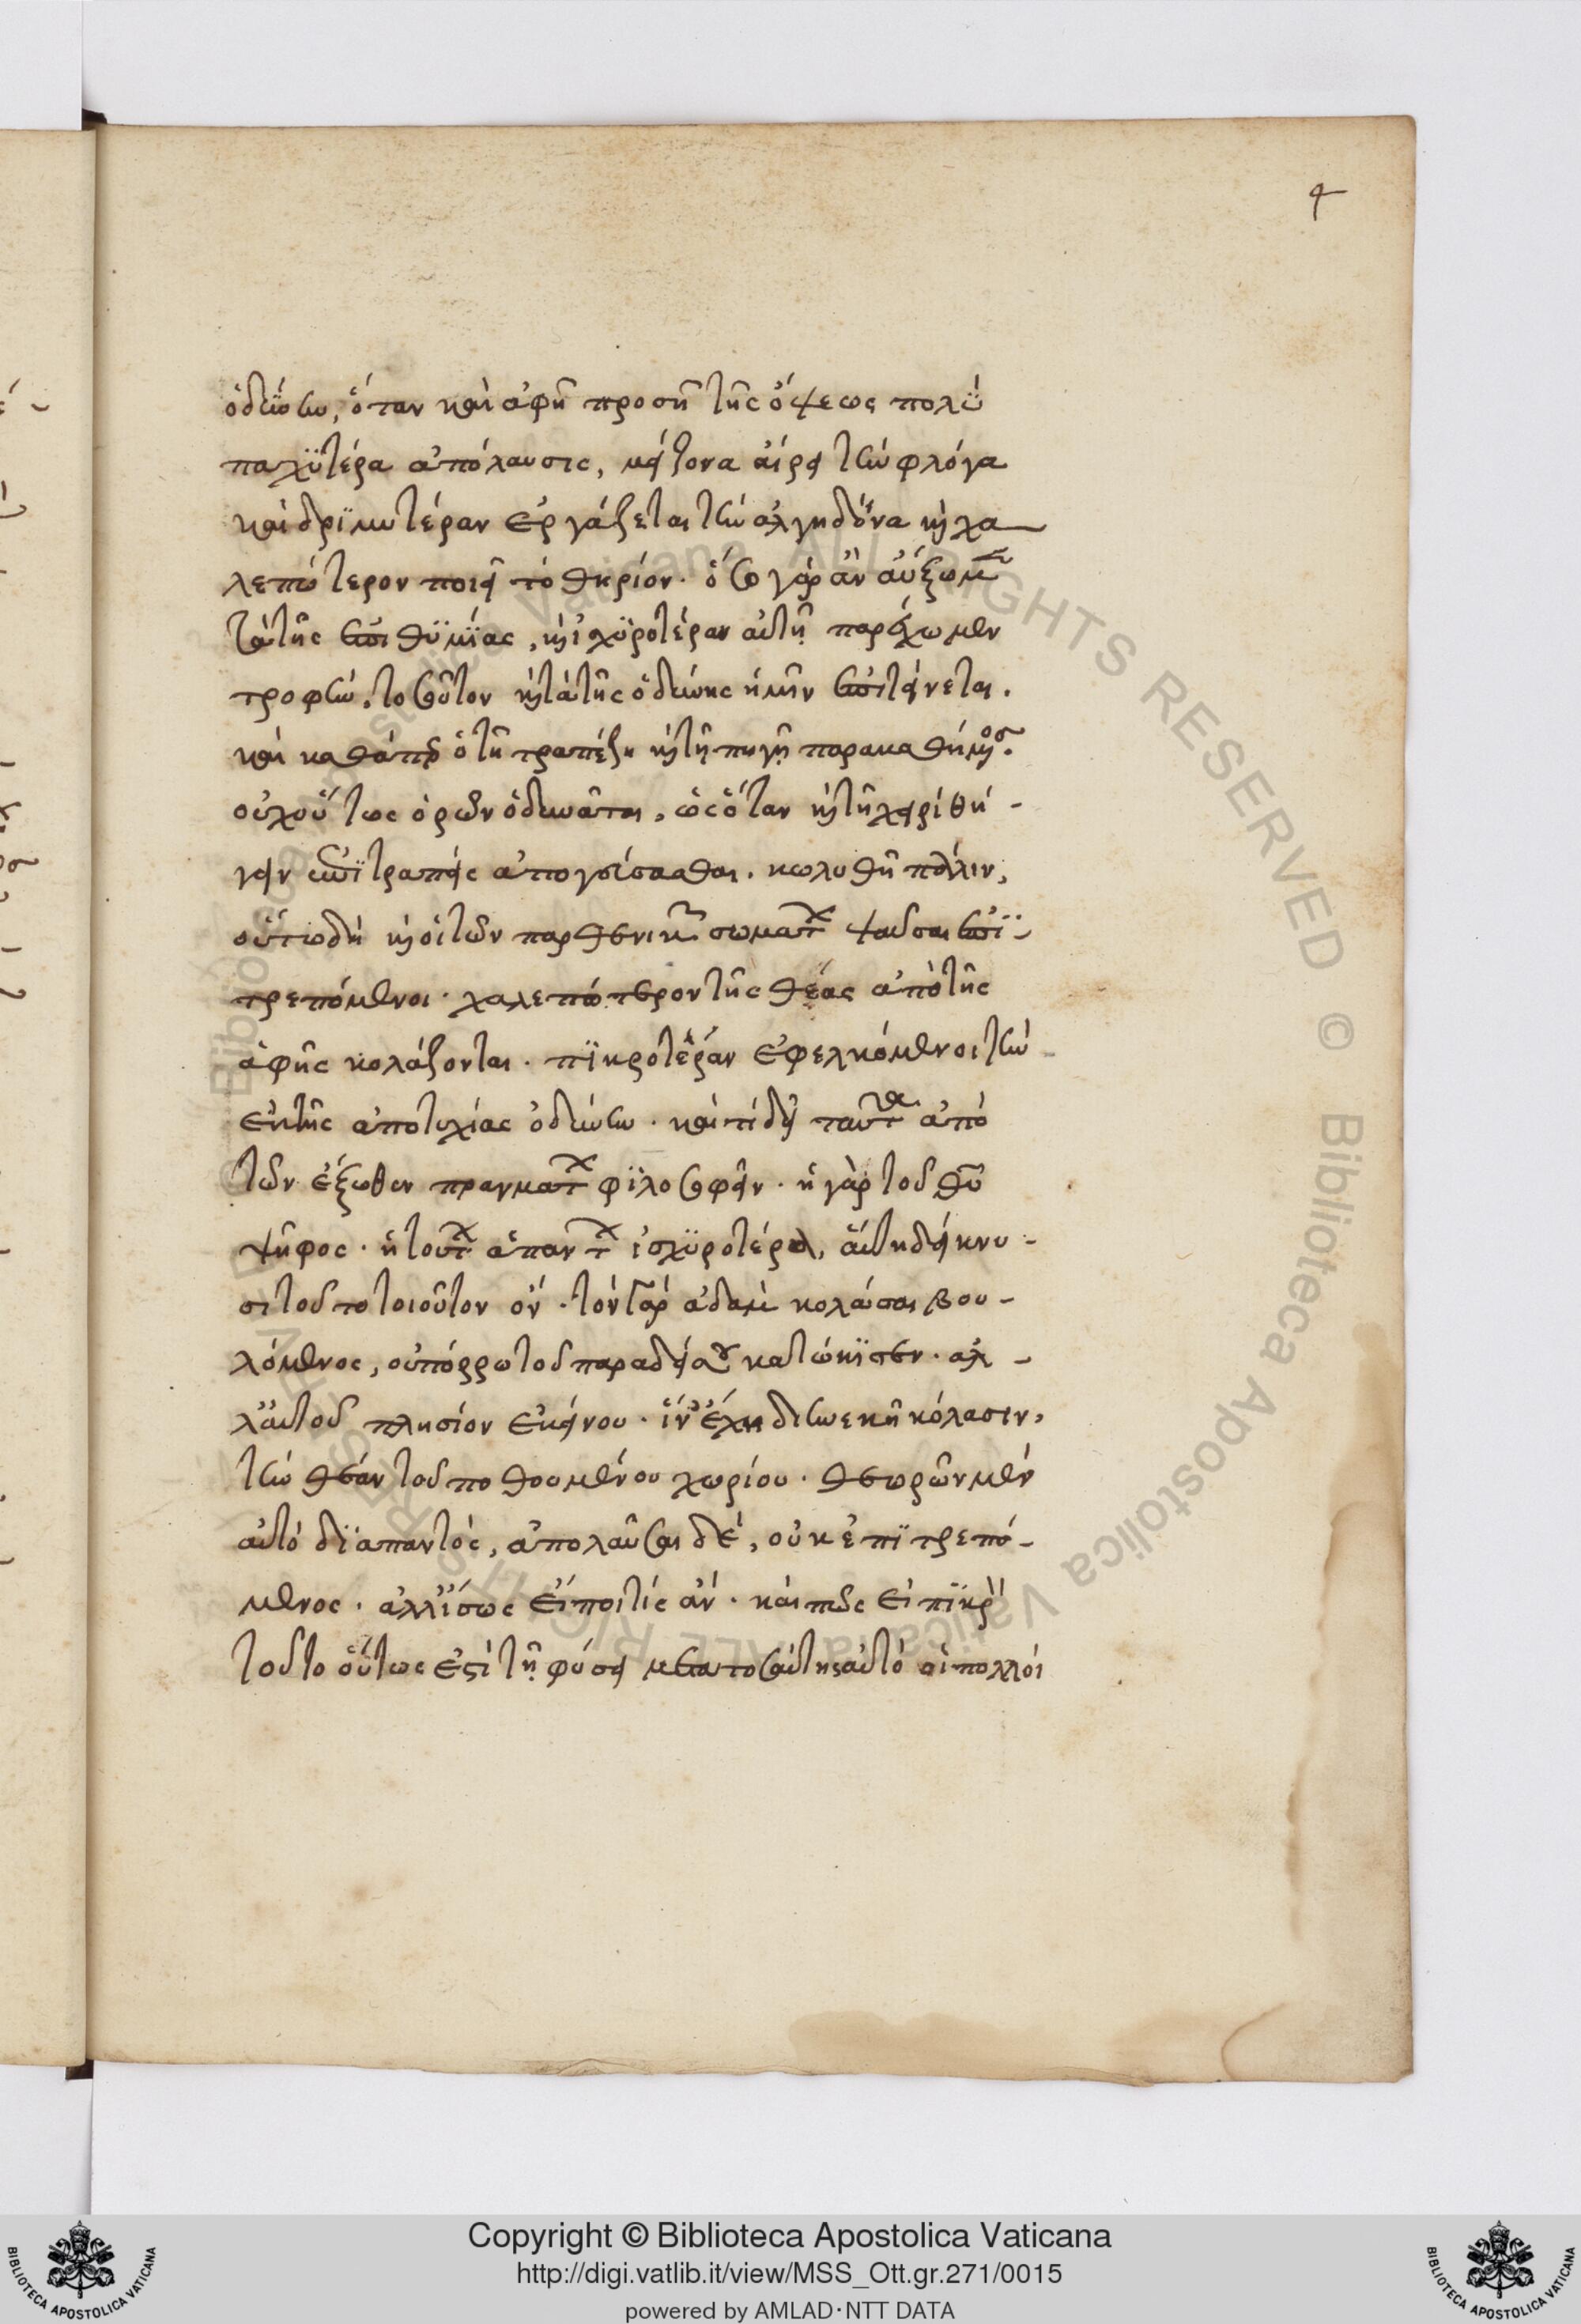 4
ὀδύνην, ὅταν καὶ ἀφὴ προσῇ τῆς ὄψεως πολὺ
παχϋτέρα ἀπόλαυσις, μείζονα αἴρει τὴν φλόγα
καὶ δρϊμυτέραν ἐργάζεται τὴν ἀλγηδόνα καὶ χα
λεπώτερον ποιεῖ τὸ θηρίον. ὅσω γὰρ ἂν αὔξωμεν
τὰ τῆς ἐπιθϋμΐας, καὶ ἰσχϋροτέραν αὐτῇ παρέχωμεν
τροφὴν. τοσοῦτον καὶ τὰ τῆς ὀδύνης ἡμῖν ἐπιτείνεται.
καὶ καθάπερ ὁ τῇ τραπέζη καὶ τῇ πηγῇ παρακαθήμενος.
οὐχ οὕτως ὁρῶν ὀδυνᾶται, ὡς ὅταν καὶ τῇ χειρὶ θή-
γειν ἐπϊτραπεὶς ἀπογεύσασθαι. κωλυθῆ πάλιν,
οὕτω δὴ καὶ οἱ τῶν παρθενικῶν σωμάτων ψαῦσαι ἐπϊ-
τρεπόμενοι. χαλεπώτερον τῆς θέας ἀπὸ τῆς
ἀφῆς κολάζονται. πϊκροτέραν ἐφελκόμενοι τὴν
ἐκ τῆς ἀποτυχίας ὀδύνην. καὶ τί δεῖ ταῦτα ἀπὸ
τῶν ἔξωθεν πραγμάτων φϊλοσοφεῖν. ἡ γὰρ τοῦ θῦ
ψῆφος. ἡ τούτων ἁπάντων ἰσχϋροτέρα, αὕτη δείκνυ-
σι τοῦτο τοιοῦτον ὂν. τὸν γὰρ ἀδὰμ κολάσαι βου-
λόμενος, οὐ πόρρω τοῦ παραδείσου κατώκϊσεν. ἀλ-
λ' αὐτοῦ πλησίον ἐκείνου. ἵν' ἔχη διηνεκῆ κόλασιν,
τὴν θέαν τοῦ ποθουμένου χωρίου. θεωρῶν μὲν
αὐτὸ δϊαπαντὸς, ἀπολαῦσαι δὲ, οὐκ ἐπϊτρεπό-
μενος. ἀλλ' ἴσως εἴποι τίς ἂν. καὶ πῶς εἰ πϊκρὸν
τοῦτο οὕτως ἐστὶ τῇ φύσει μετὰ τοσαύτης αὐτὸ οἱ πολλοὶ
Copyright © Biblioteca Apostolica Vaticana
http://digi.vatlib.it/view/MSS_Ott.gr.271/0015
powered by AMLAD·NTT DATA